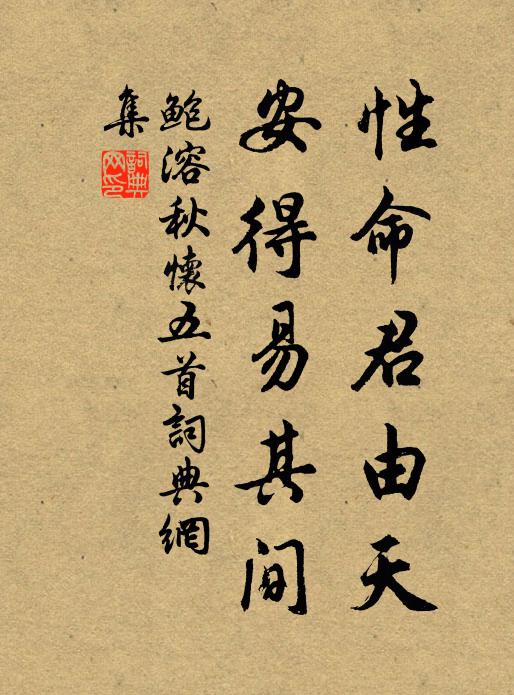 性命君由天
安得易其间
鲍溶秋懷五首詞典網
集
詞典网印